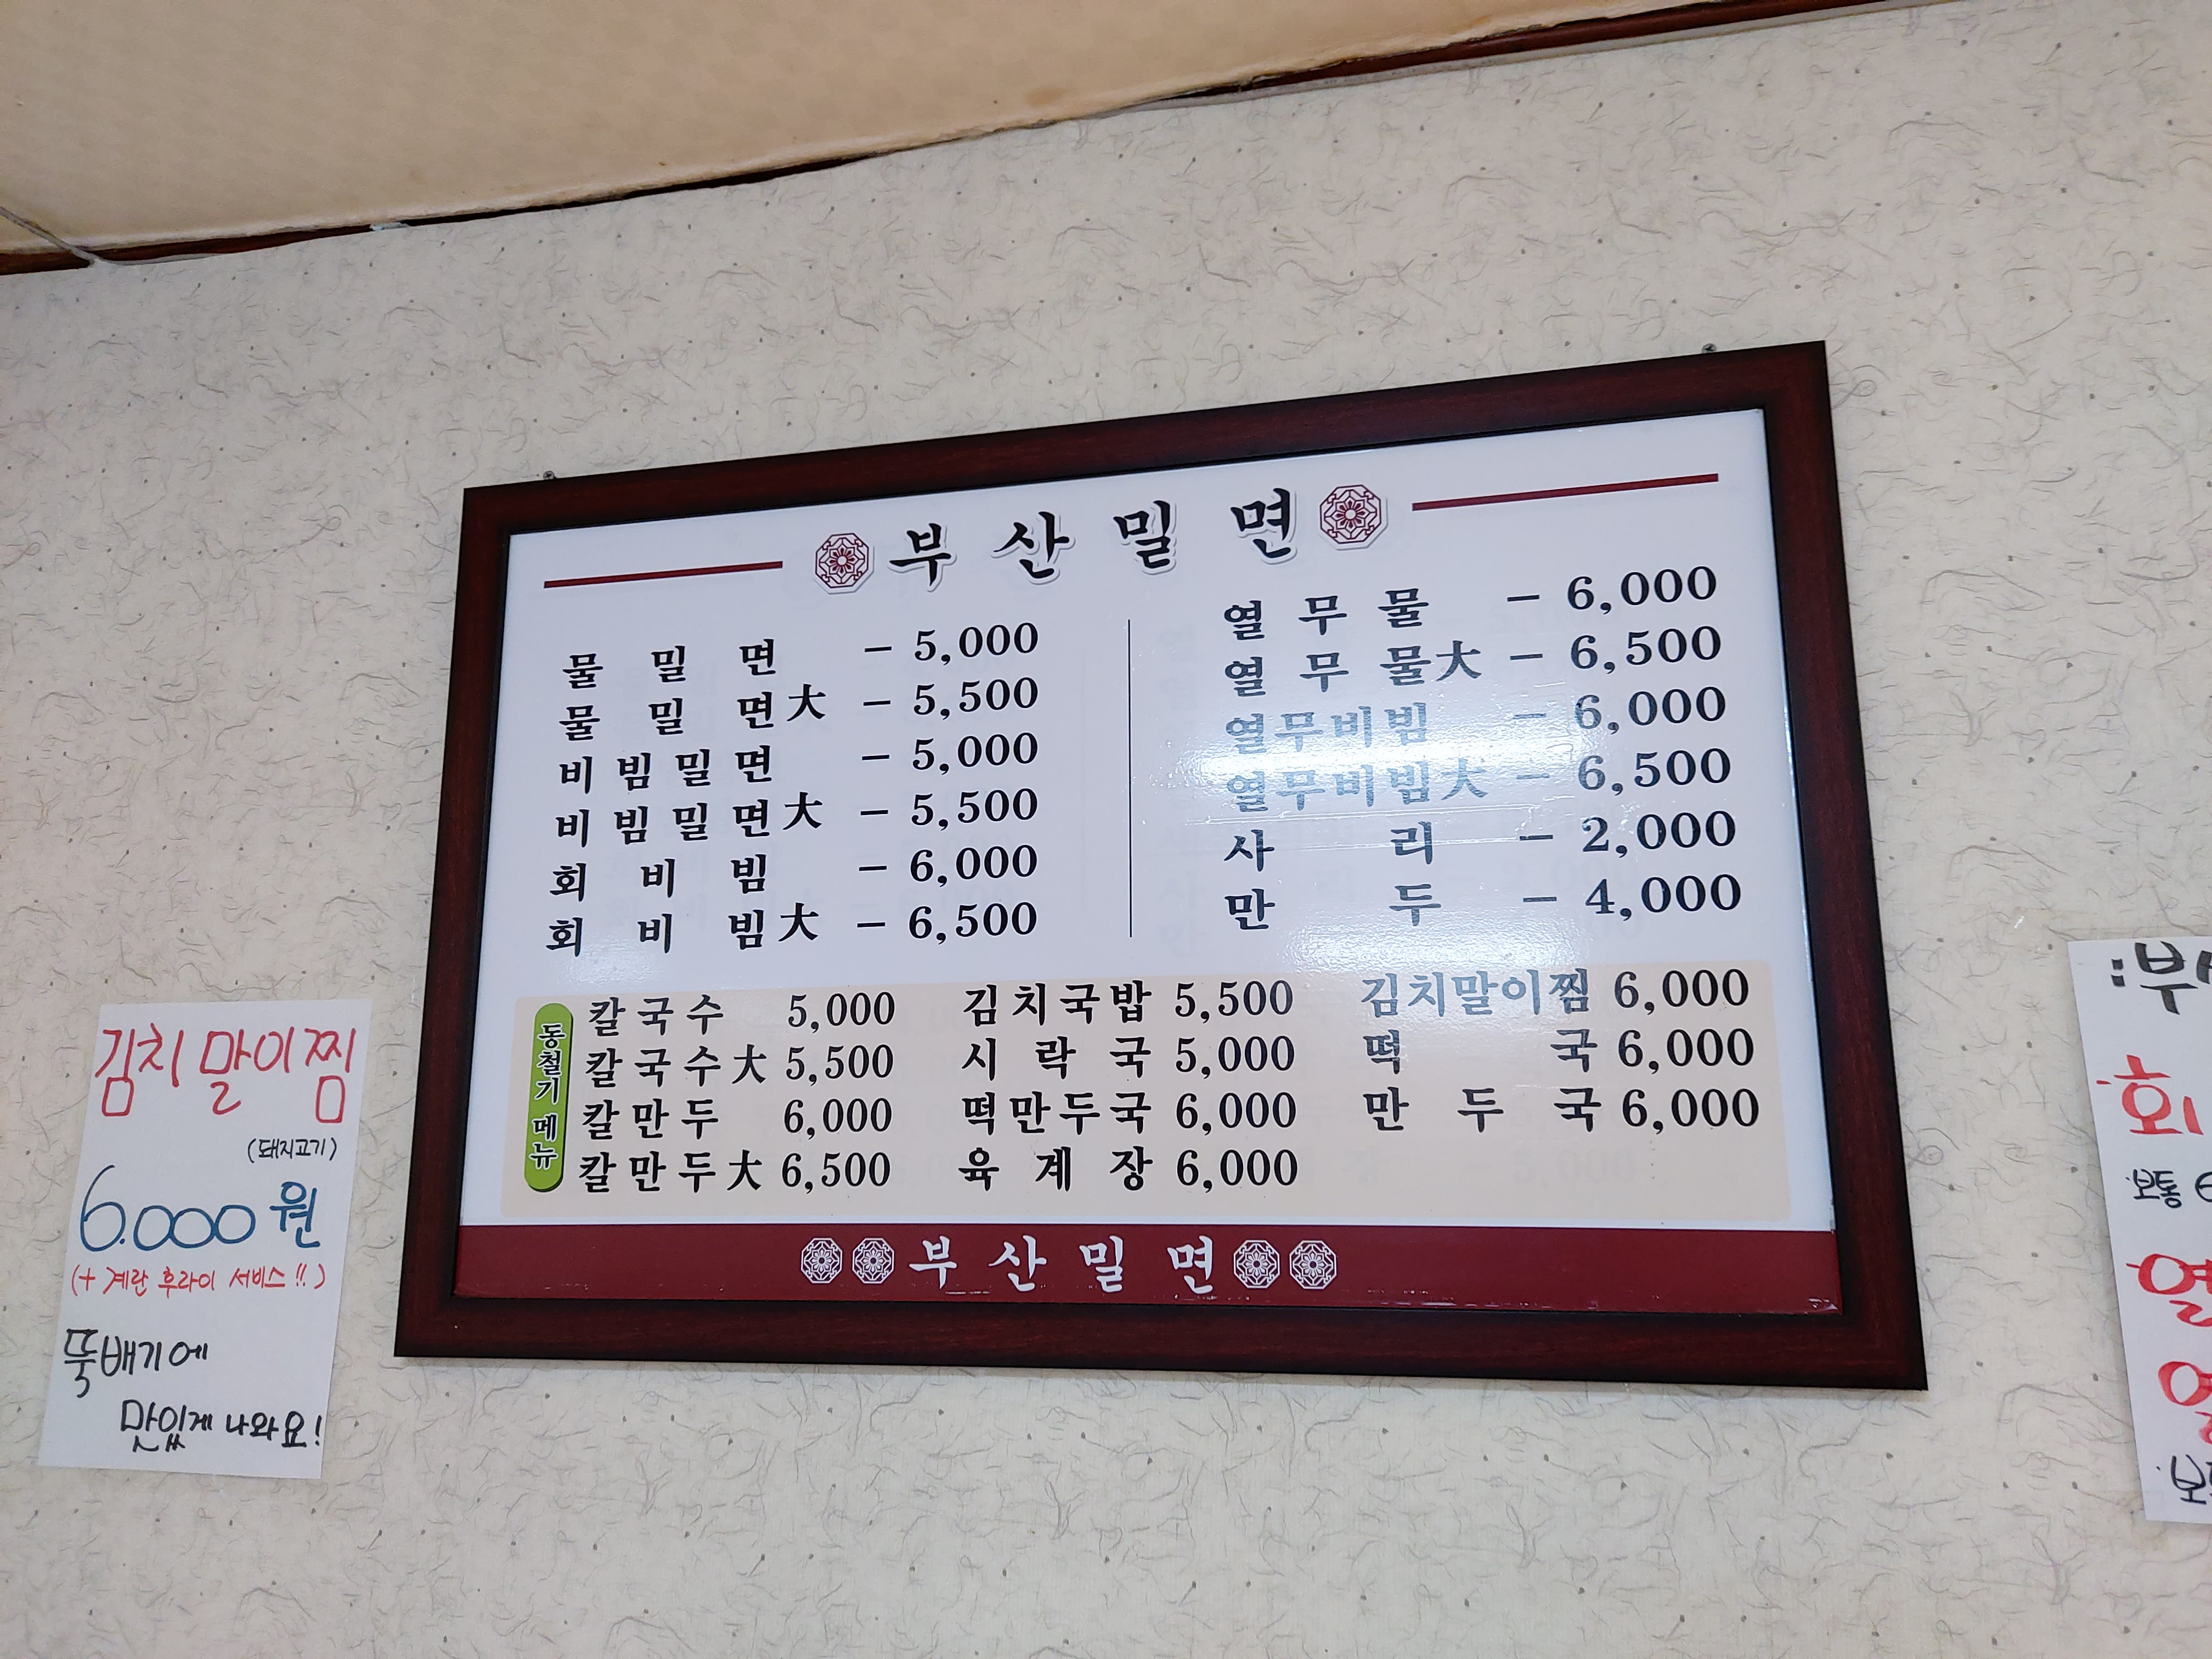 부산밀면
물밀면 - 5,000
물밀면大 - 5,500
비빔밀면 - 5,000
비빔밀면大 - 5,500
회비빔 - 6,000
회비빔大 - 6,500
열무물 - 6,000
열무물大 - 6,500
열무비빔 - 6,000
열무비빔大 - 6,500
사리 - 2,000
만두 - 4,000
동철기 메뉴
칼국수 5,000
칼국수大 5,500
칼만두 6,000
칼만두大 6,500
김치국밥 5,500
시락국 5,000
떡만두국 6,000
육계장 6,000
김치말이찜 6,000
떡국 6,000
만두국 6,000
부산밀면
김치말이찜
(돼지고기)
6.000원
(+ 계란 후라이 서비스!!)
뚝배기에
맛있게 나와요!
회
보통
열